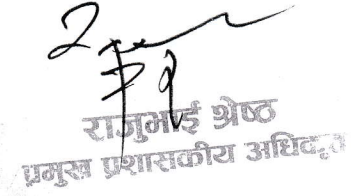 राजुभाई श्रेष्ठ
प्रमुख प्रशासकीय अधिकृत